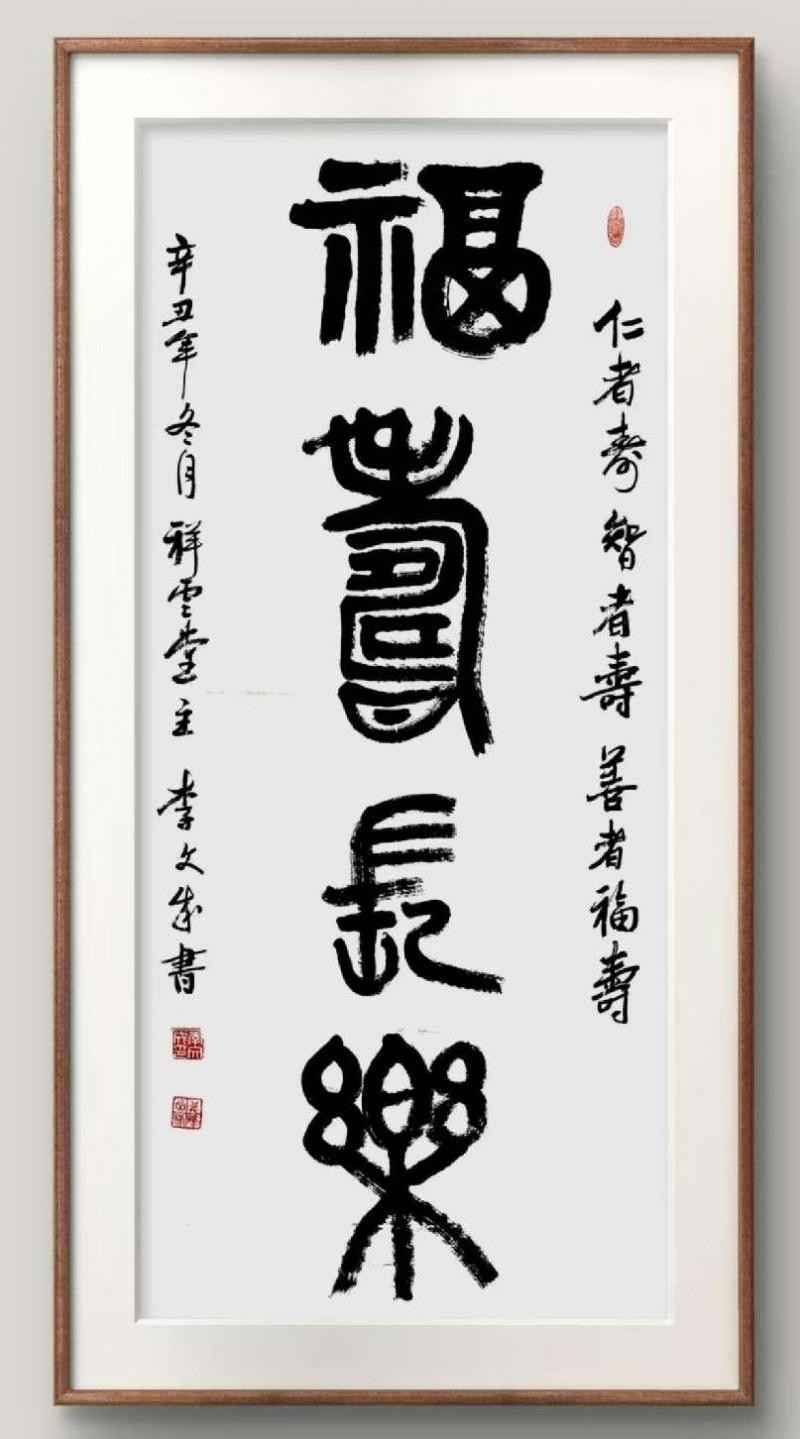 仁者寿智者壽善者福壽
福壽長樂
辛丑年冬月祥雲堂主李文成書